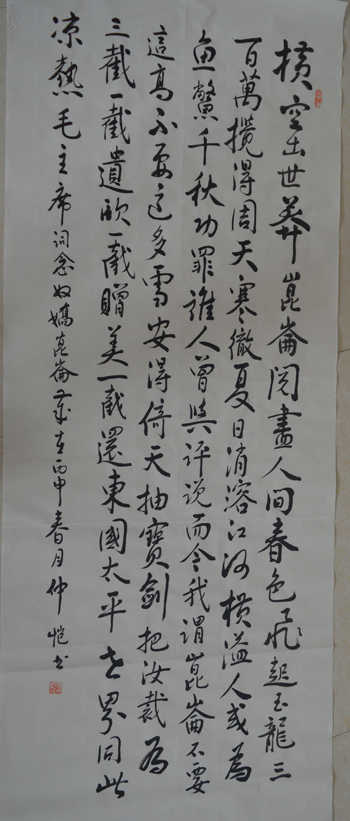 橫空出世莽崑崙閱盡人間春色飛起玉龍三
百萬攪得周天寒徹夏日消溶江河橫溢人或為
魚鱉千秋功罪誰人曾與評說而今我謂崑崙不要
這高不要這多雪安得倚天抽寶劍把汝裁為
三截一截遺歐一截贈美一截還東國太平世界同此
涼熱毛主席詞念奴嬌崑崙歲在丙申春月仲愷书